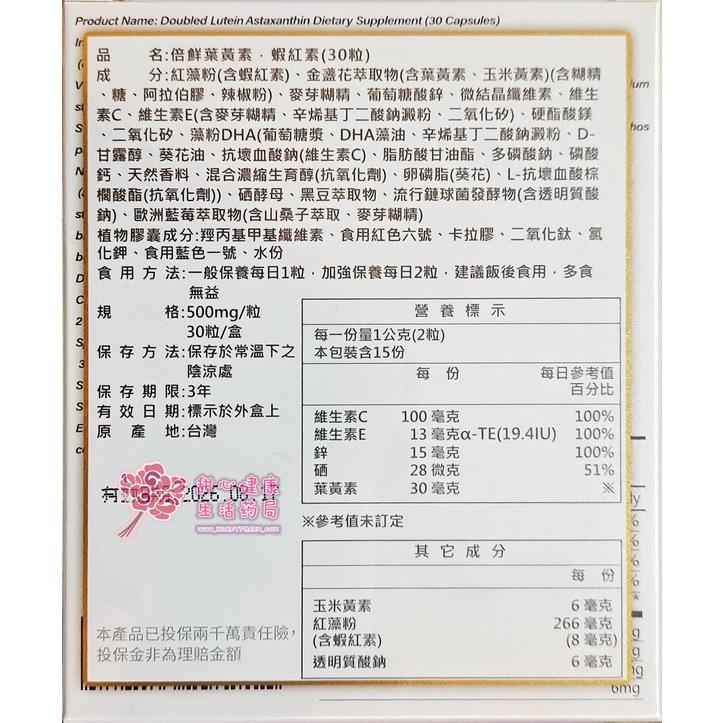 Product Name: Doubled Lutein Astaxanthin Dietary Supplement (30 Capsules)
品名:倍鮮葉黃素．蝦紅素(30粒)
成分:紅藻粉(含蝦紅素)、金盞花萃取物(含葉黃素、玉米黃素)(含糊精
、糖、阿拉伯膠、辣椒粉)、麥芽糊精、葡萄糖酸鋅、微結晶纖維素、維生
素C、維生素E(含麥芽糊精、辛烯基丁二酸鈉澱粉、二氧化矽)、硬酯酸鎂
、二氧化矽、藻粉DHA(葡萄糖漿、DHA藻油、辛烯基丁二酸鈉澱粉、D-
甘露醇、葵花油、抗壞血酸鈉(維生素C)、脂肪酸甘油酯、多磷酸鈉、磷酸
鈣、天然香料、混合濃縮生育醇(抗氧化劑)、卵磷脂(葵花)、L-抗壞血酸棕
櫚酸酯(抗氧化劑))、硒酵母、黑豆萃取物、流行鏈球菌發酵物(含透明質酸
鈉)、歐洲藍莓萃取物(含山桑子萃取、麥芽糊精)
植物膠囊成分:羥丙基甲基纖維素、食用紅色六號、卡拉膠、二氧化鈦、氯
化鉀、食用藍色一號、水份
食用方法:一般保養每日1粒，加強保養每日2粒，建議飯後食用，多食
無益
規格:500mg/粒
30粒/盒
保存方法:保存於常溫下之
陰涼處
保存期限:3年
有效日期:標示於外盒上
原產地:台灣
營養標示
每一份量1公克(2粒)
本包裝含15份
每份 每日參考值
百分比
維生素C 100 毫克 100%
維生素E 13 毫克α-TE(19.4IU) 100%
鋅 15 毫克 100%
硒 28 微克 51%
葉黃素 30 毫克 ※
※參考值未訂定
其它成分
每份
玉米黃素 6 毫克
紅藻粉 266 毫克
(含蝦紅素) (8 毫克)
透明質酸鈉 6 毫克
甜心健康
生活药局
本產品已投保兩千萬責任險，
投保金非為理賠金額
6mg